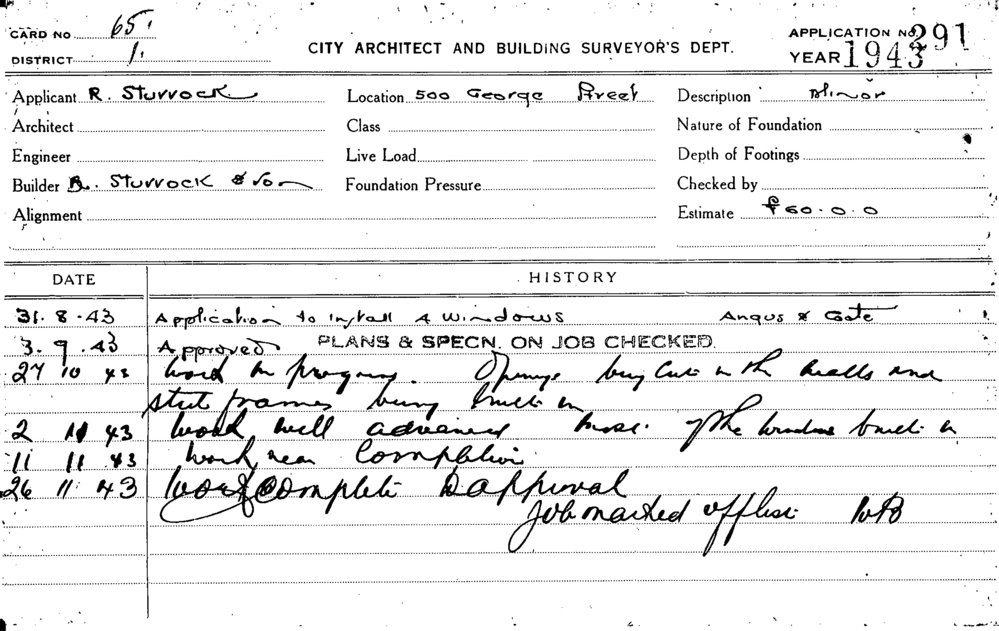 CARD NO 65
DISTRICT 1.
CITY ARCHITECT AND BUILDING SURVEYOR'S DEPT.
APPLICATION NO. 291
YEAR 1943
Applicant R. Sturrock Location 500 George Street Description Minor
Architect Class Nature of Foundation
Engineer Live Load Depth of Footings
Builder R. Sturrock & Son Foundation Pressure Checked by
Alignment Estimate £60.0.0
DATE HISTORY
31.8.43 Application to install 4 windows Angus & Cote
3.9.43 Approved PLANS & SPECN. ON JOB CHECKED.
27 10 43 Work in progress. Openings being cut in the walls and
steel frames being built in
2 11 43 Work well advanced most of the windows built in
11 11 43 Work near Completion
26 11 43 Work complete approval
Job marked off list